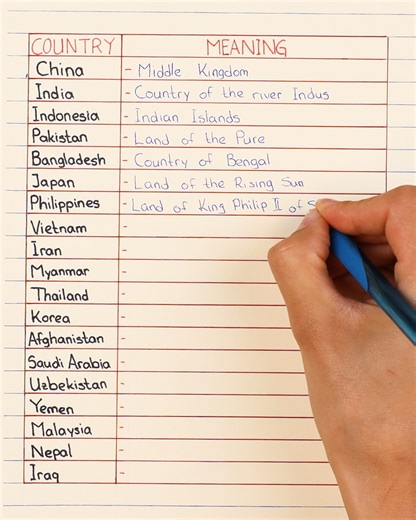 COUNTRY MEANING
China - Middle Kingdom
India - Country of the river Indus
Indonesia - Indian Islands
Pakistan - Land of the Pure
Bangladesh - Country of Bengal
Japan - Land of the Rising Sun
Philippines - Land of King Philip II of S
Vietnam -
Iran -
Myanmar -
Thailand -
Korea -
Afghanistan -
Saudi Arabia -
Uzbekistan -
Yemen -
Malaysia -
Nepal -
Iraq -